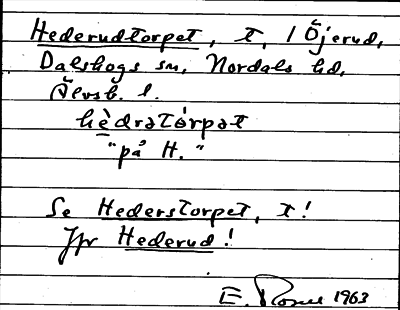 Hederudtorpet, t, 1 Öjerud,
Dalskogs sn, Nordals hd,
Älvsb. l.
hèdratórpat
"på H."
Se Hederstorpet, t!
Jfr Hederud!
E. 1963